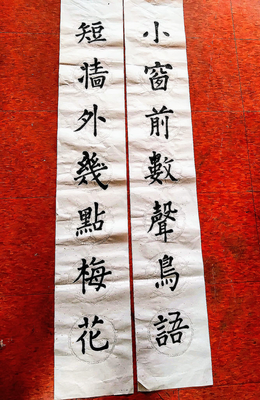 小窗前數聲鳥語
短墻外幾點梅花